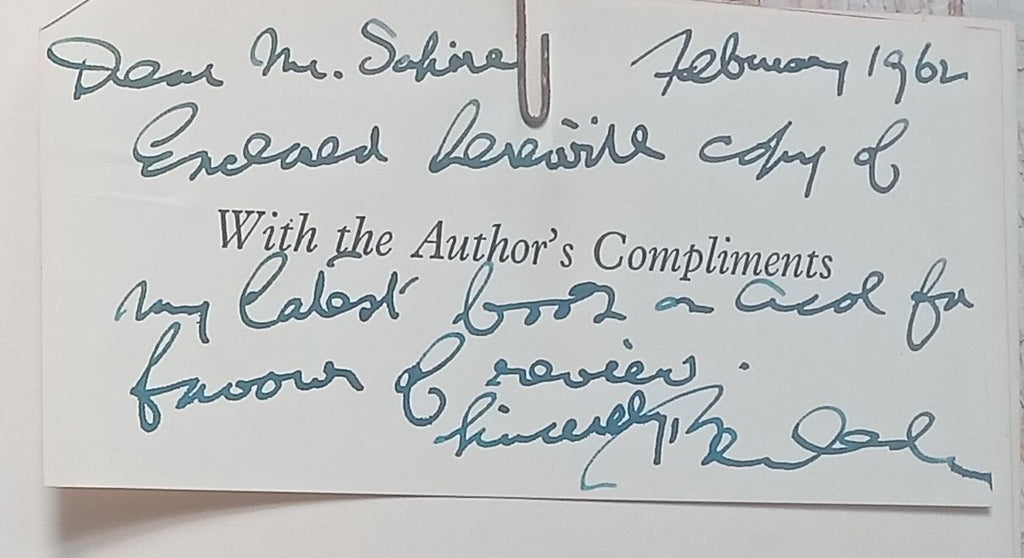 Dear Mr. Sapire February 1962
Enclosed herewith copy of
With the Author's Compliments
my latest book on Acol for
favour of review.
Sincerely